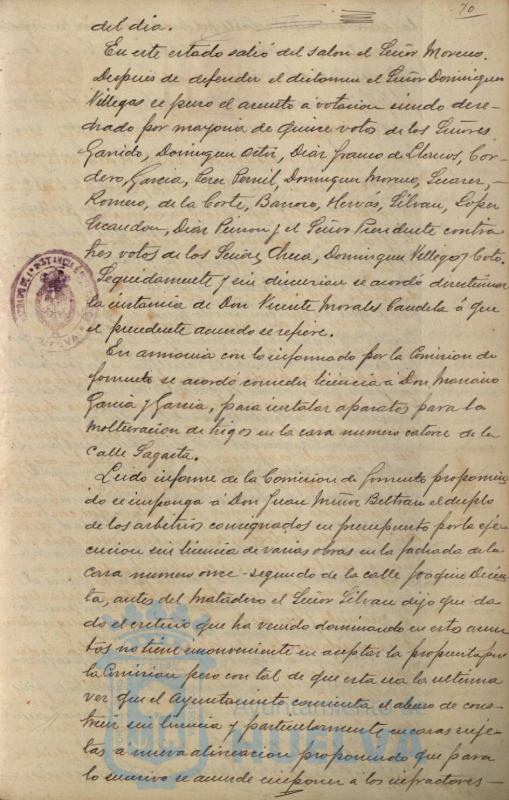 70
del dia.
En este estado salió del salon el Señor Moreno.
Después de defender el dictamen el Señor Dominguez
Villegas se puso el asunto á votacion siendo dese-
chado por mayoria de quince votos de los Señores
Garrido, Dominguez Ortiz, Diaz Franco de Llanos, Cor-
dero, Garcia, Perez Pernil, Dominguez Moreno, Suarez,
Romero, de la Corte, Barroso, Hervas, Silvan, Lopez
Escandon, Diaz y el Señor Presidente contra
tres votos de los Señores Checa, Dominguez Villegas y Coto.
Seguidamente y sin discusion se acordó desestimar
la instancia de Don Vicente Morales Candela á que
el precedente acuerdo se refiere.
En armonia con lo informado por la Comision de
fomento se acordó conceder licencia á Don Mariano
Garcia y Garcia, para instalar aparatos para la
molturacion de higos en la casa numero catorce de la
calle Sagasta.
Leido informe de la Comision de fomento proponien-
do se imponga á Don Juan Muñoz Beltran el duplo
de los arbitrios consignados en presupuesto por la eje-
cucion sin licencia de varias obras en la fachada de la
casa numero once-segundo de la calle Joaquin Dicen-
ta, antes del Matadero el Señor Silvan dijo que da-
do el criterio que ha venido dominando en estos asun-
tos no tiene inconveniente en aceptar la propuesta de
la Comision pero con tal de que esta sea la ultima
vez que el Ayuntamiento consienta el abuso de cons-
truir sin licencia y particularmente en casas suje-
tas a nueva alineacion proponiendo que para
lo sucesivo se acuerde imponer á los infractores
Ayuntamiento de
HUELVA